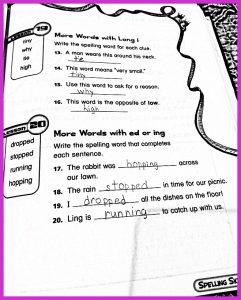 Lesson 19
More Words with Long i
tiny
why
tie
high
Write the spelling word for each clue.
13. A man wears this around his neck.
tie
14. This word means "very small."
tiny
15. Use this word to ask for a reason.
why
16. This word is the opposite of low.
high
Lesson 20
More Words with ed or ing
dropped
stopped
running
hopping
Write the spelling word that completes
each sentence.
17. The rabbit was hopping across
our lawn.
18. The rain stopped in time for our picnic.
19. I dropped all the dishes on the floor!
20. Ling is running to catch up with us.
Spelling